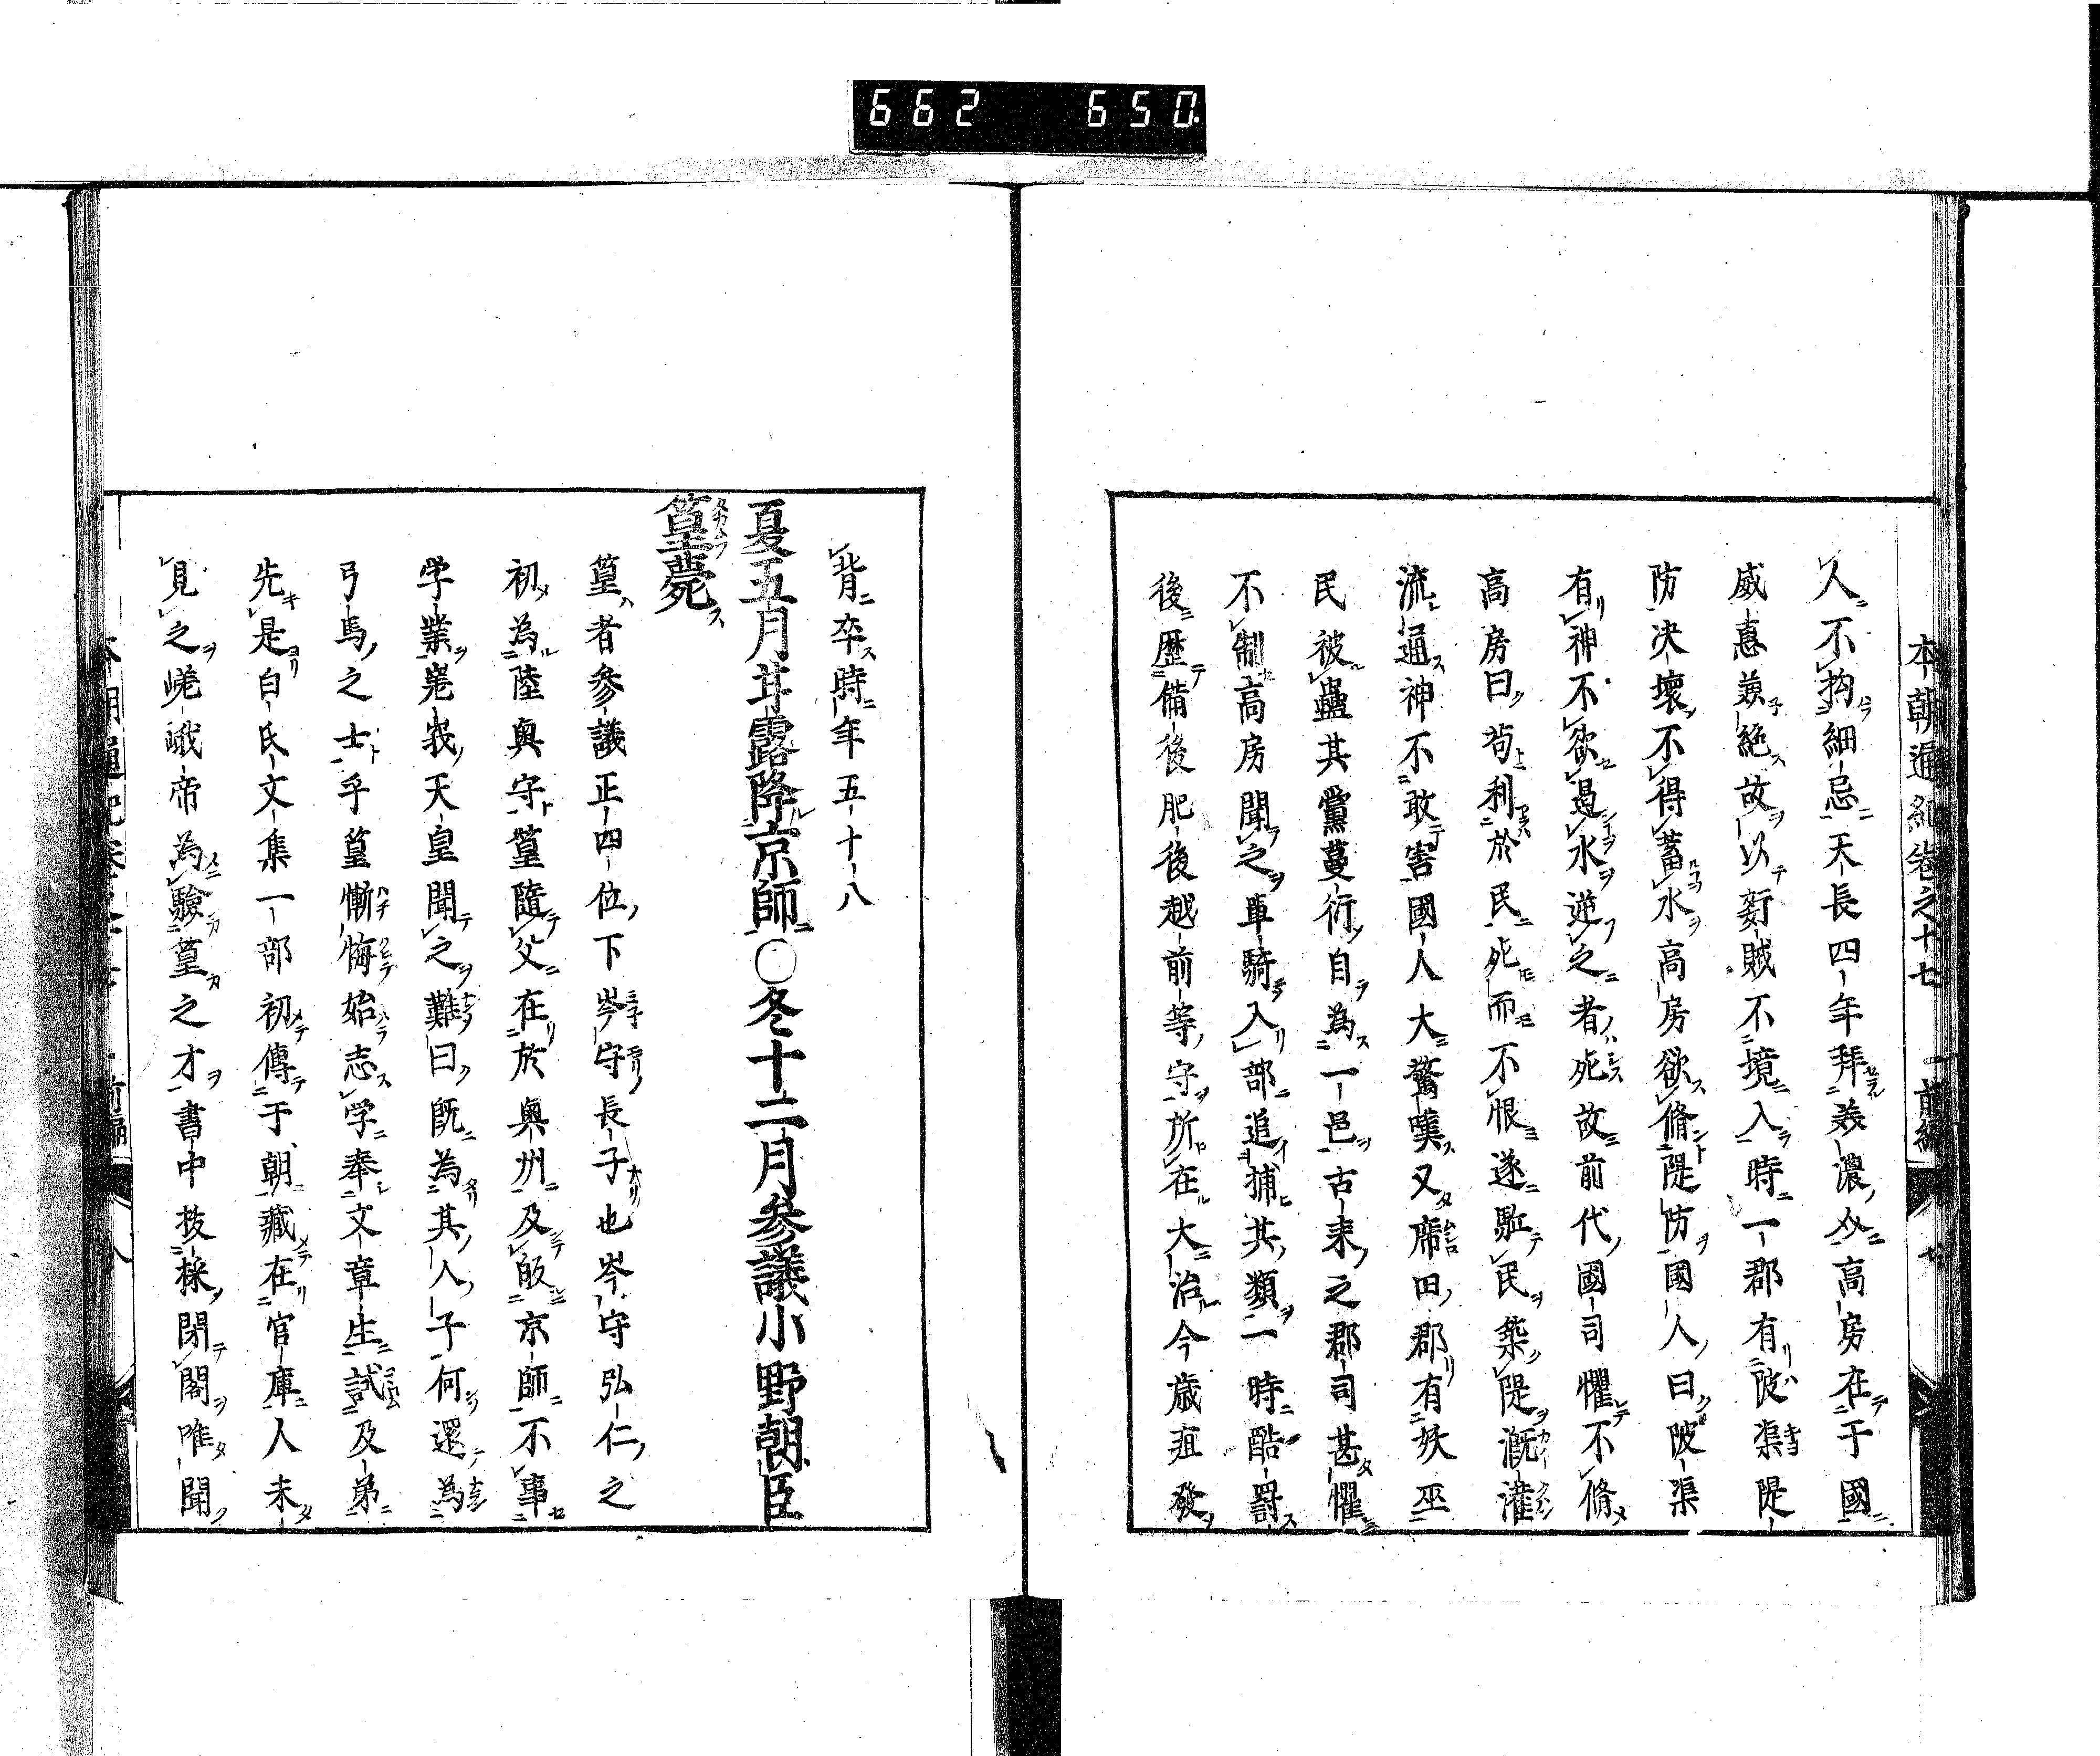 662 650
本朝通紀卷之十七 前編 七
人不拘細忌天長四年拜美濃介高房在于國
威惠兼絕故以奸賊不境入時一郡有陂渠隄
防决壞不得蓄水高房欲脩隄防國人曰陂渠
有神不欲遏水逆之者死故前代國司懼不脩
高房曰苟利於民死而不恨遂駈民築隄漑灌
流通神不敢害國人大驚嘆又席田郡有妖巫
民被蠱其黨蔓衍自為一邑古来之郡司甚懼
不制高房聞之單騎入部追捕其類一時酷罸
後歷備後肥後越前等守所在大治今歲疽發
背卒時年五十八
夏五月甘露降京師○冬十二月参議小野朝臣
篁薨
篁者参議正四位下岑守長子也岑守弘仁之
初為陸奥守篁隨父在於奥州及皈京師不事
学業嵯峩天皇聞之難曰既為其人子何還為
弓馬之士乎篁慚悔始志学奉文章生試及弟
先是白氏文集一部初傳于朝藏在官庫人未
見之嵯峨帝為驗篁之才書中抜採閉閣唯聞